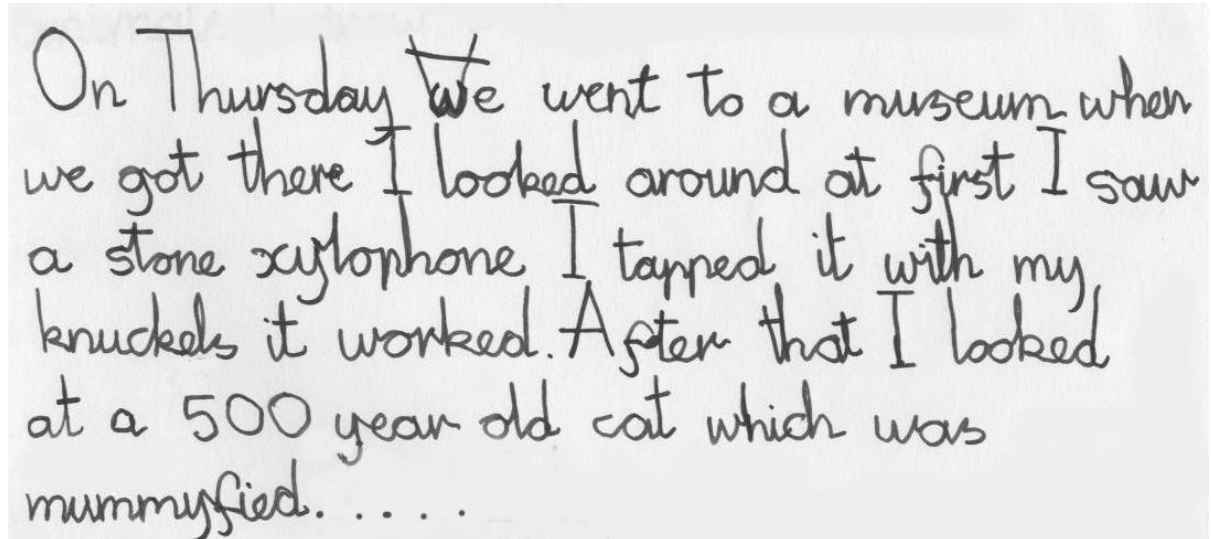 On Thursday We went to a museum when
we got there I looked around at first I saw
a stone xylophone I tapped it with my
knuckels it worked. After that I looked
at a 500 year old cat which was
mummyfied. . . . .